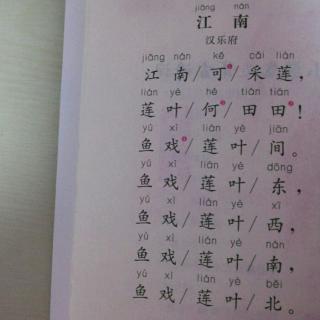 jiāng nán
江 南
汉乐府
jiāng nán kě cǎi lián
江 南/可/采 莲，
lián yè hé tián tián
莲 叶/何/田 田！
yú xì lián yè jiān
鱼 戏/莲 叶/间。
yú xì lián yè dōng
鱼 戏/莲 叶/东，
yú xì lián yè xī
鱼 戏/莲 叶/西，
yú xì lián yè nán
鱼 戏/莲 叶/南，
yú xì lián yè běi
鱼 戏/莲 叶/北。